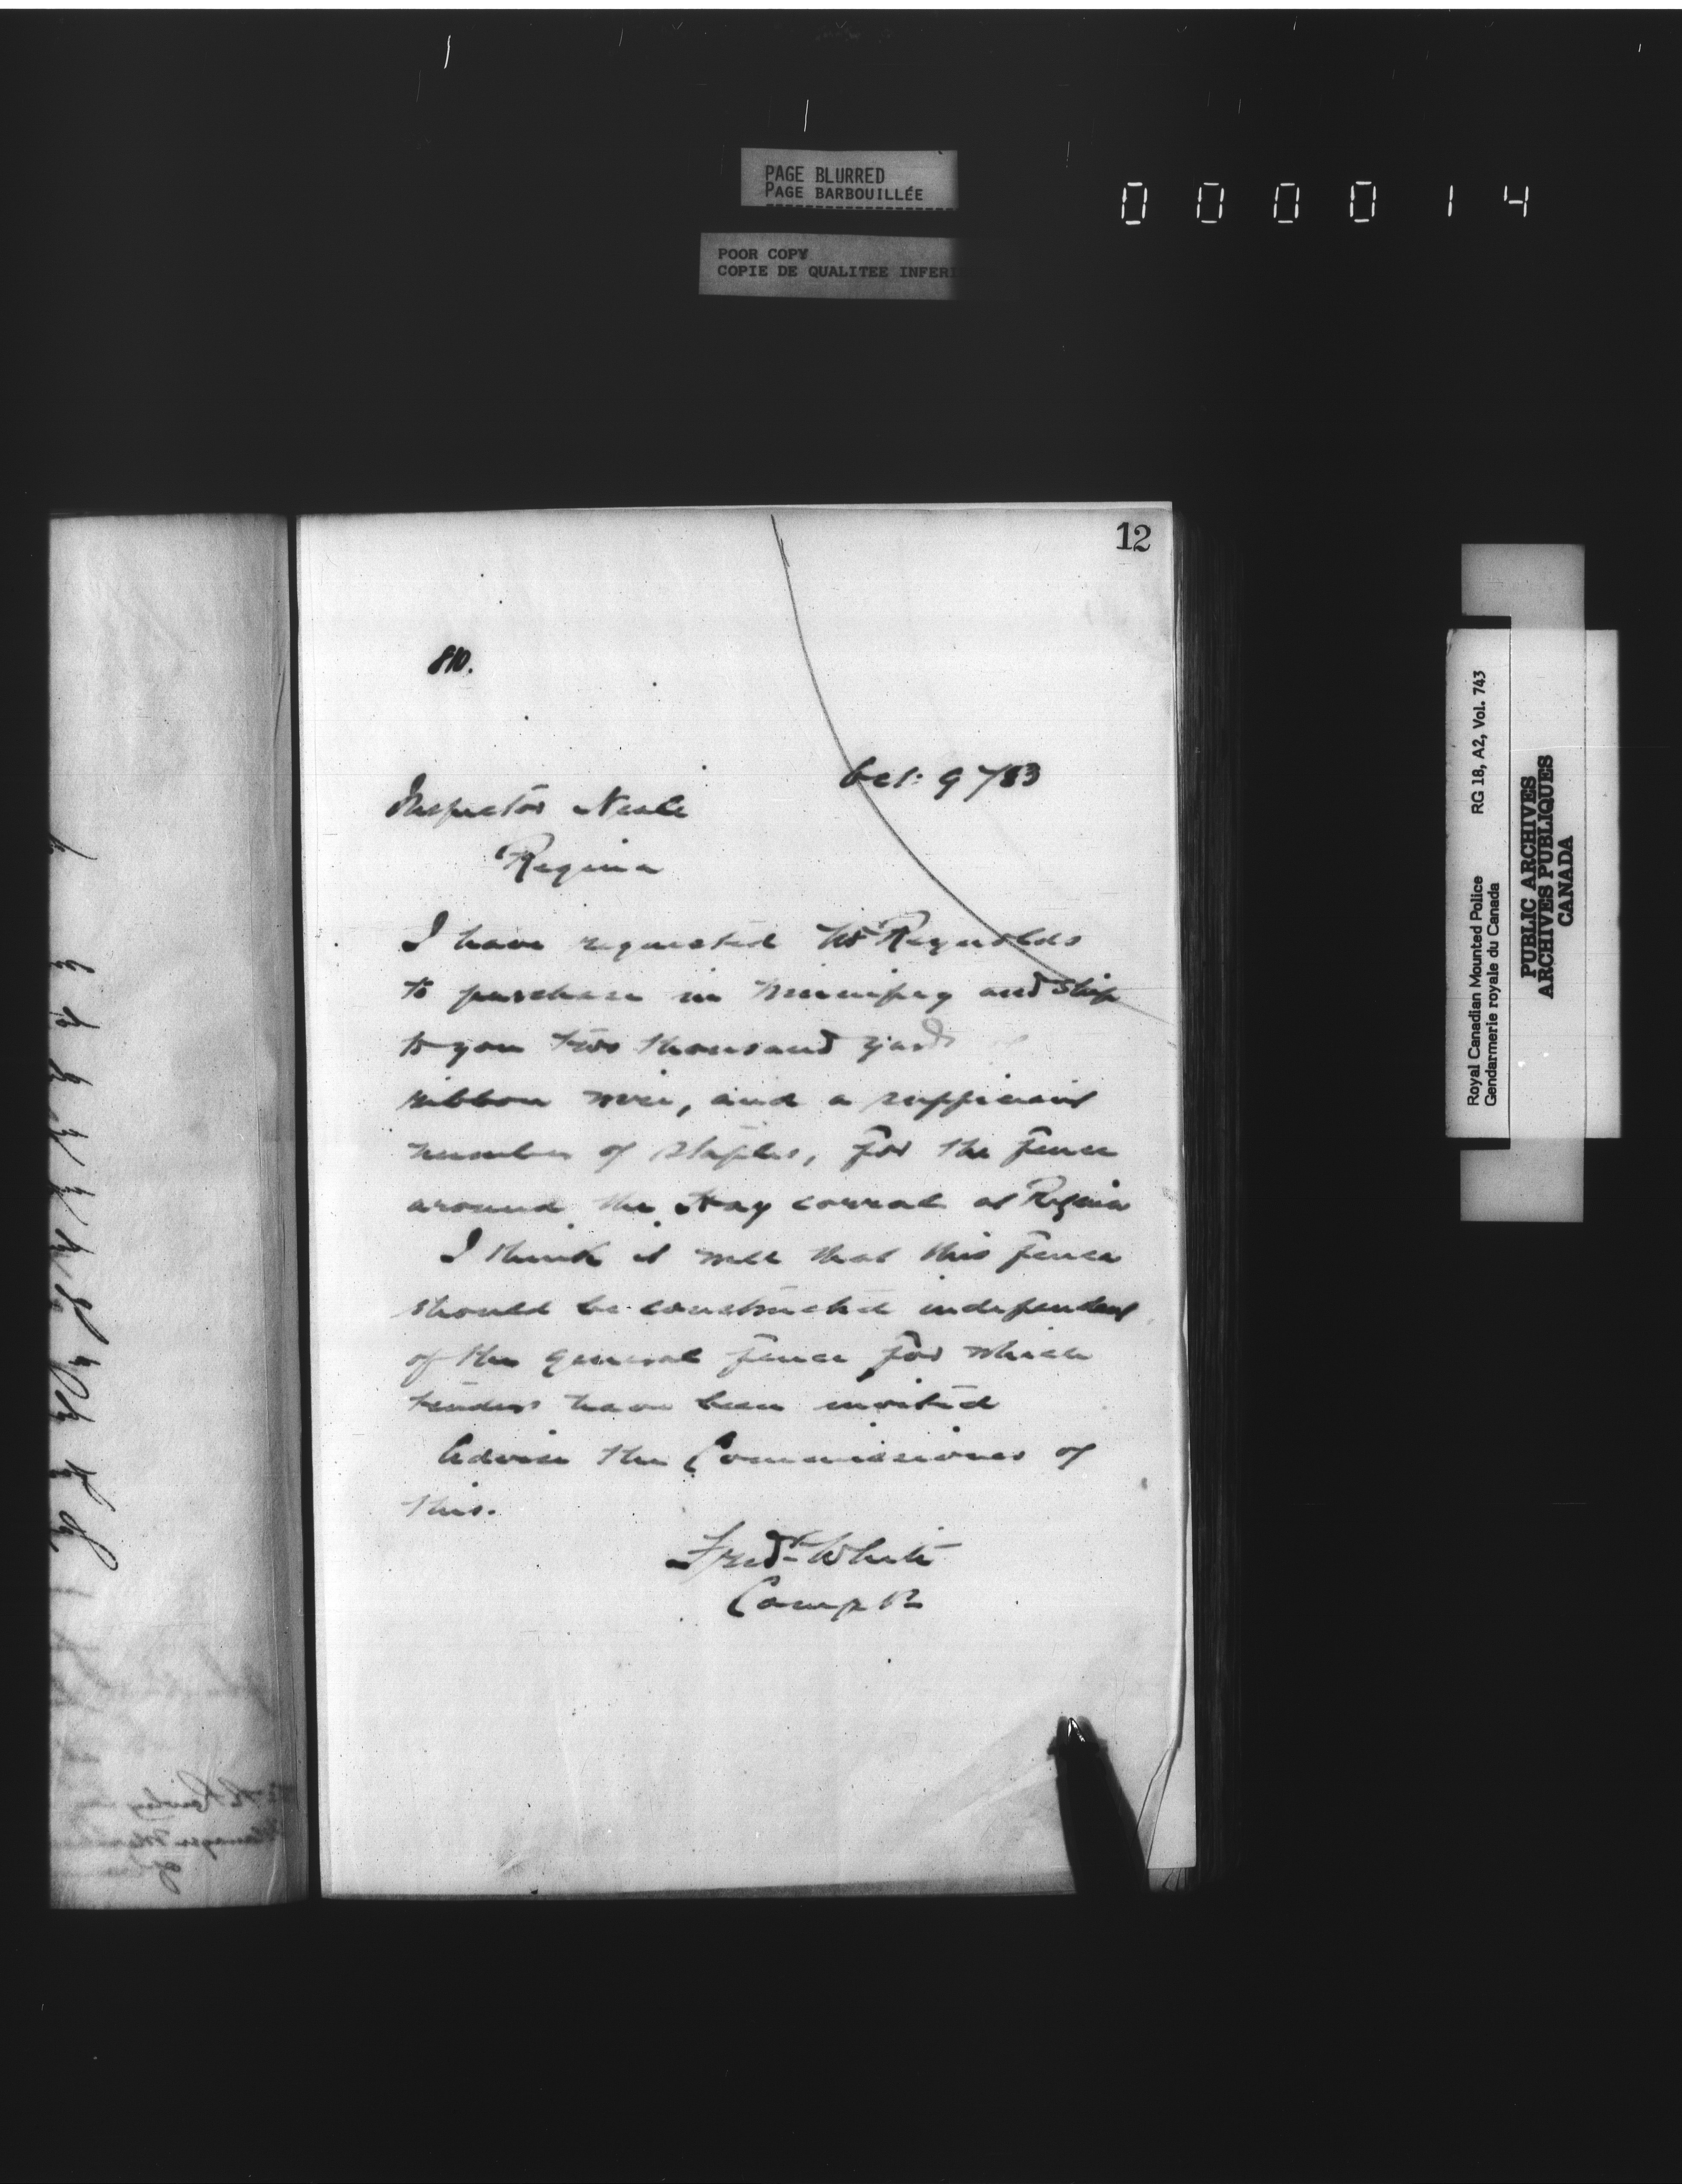 PAGE BLURRED
PAGE BARBOUILLÉE
000014
POOR COPY
COPIE DE QUALITEE INFERI
12
810.
Oct: 9/83
Inspector Neale
Regina
I have requested Mr Reynolds
to purchase in Winnipeg and ship
to you two thousand yards of
ribbon wire, and a sufficient
number of staples, for the fence
around the Hay corral at Regina
I think it well that this fence
should be constructed independent
of the general fence for which
tenders have been invited
Advise the Commissioner of
this.
Fredk White
Comp
Royal Canadian Mounted Police RG 18, A2, Vol. 743
Gendarmerie royale du Canada
PUBLIC ARCHIVES
ARCHIVES PUBLIQUES
CANADA